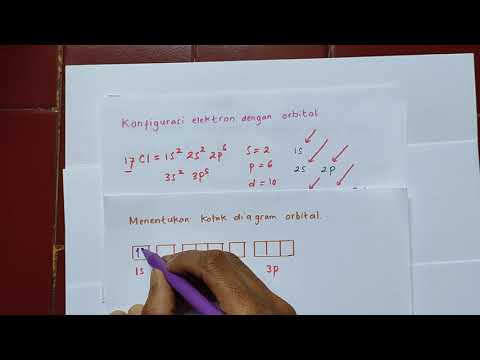 Konfigurasi elektron dengan orbital
17 Cl = 1s² 2s² 2p⁶
3s² 3p⁵
s = 2
p = 6
d = 10
1s
2s 2p
Menentukan kotak diagram orbital.
1s
3p